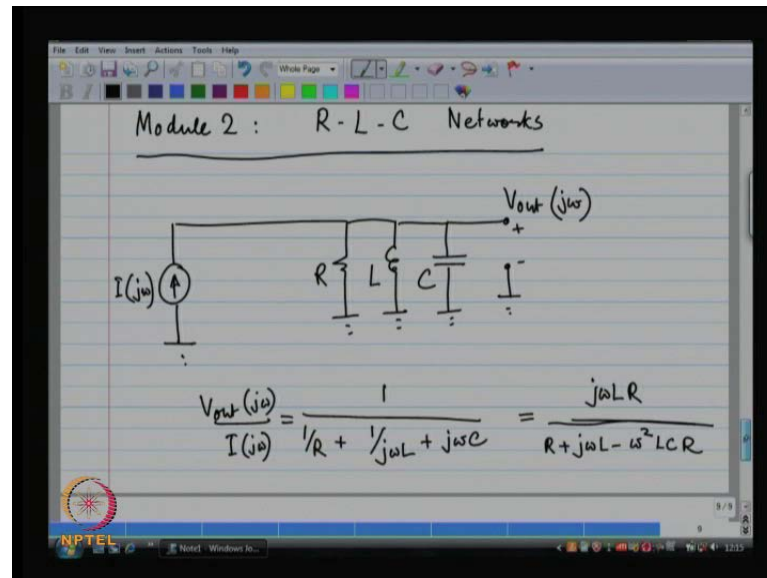 File Edit View Insert Actions Tools Help
Whole Page
B I
Module 2 : R - L - C Networks
Vout (jω)
+
-
I(jω)
R
L
C
Vout (jω) / I(jω) = 1 / (1/R + 1/jωL + jωC) = jωLR / (R + jωL - ω² LCR)
9/9
9
NPTEL
Note1 - Windows Jo...
12:15